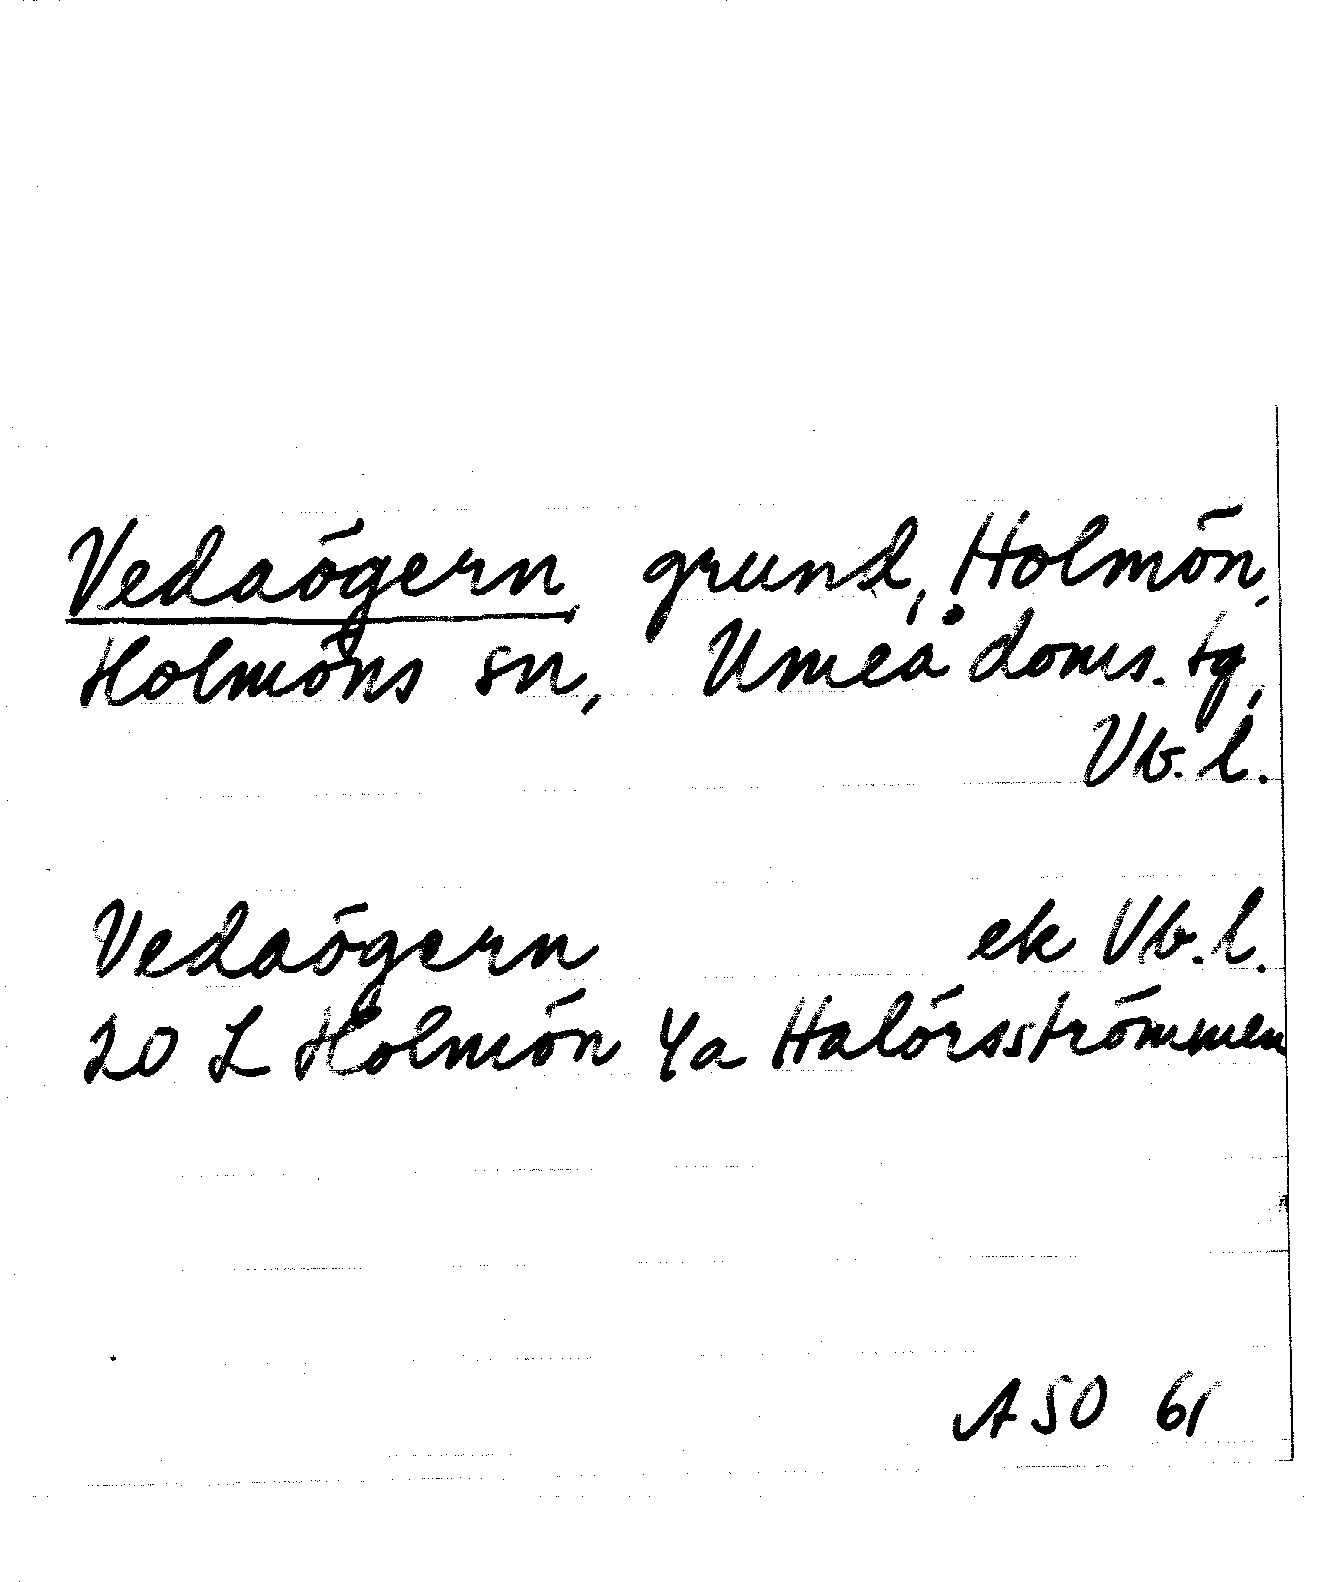 Vedaögern, grund, Holmön,
Holmöns sn, Umeå doms. tg,
Vb. l.
Vedaögern ek Vb. l.
20 L Holmön Ya Halörsströmmen
ASO 61